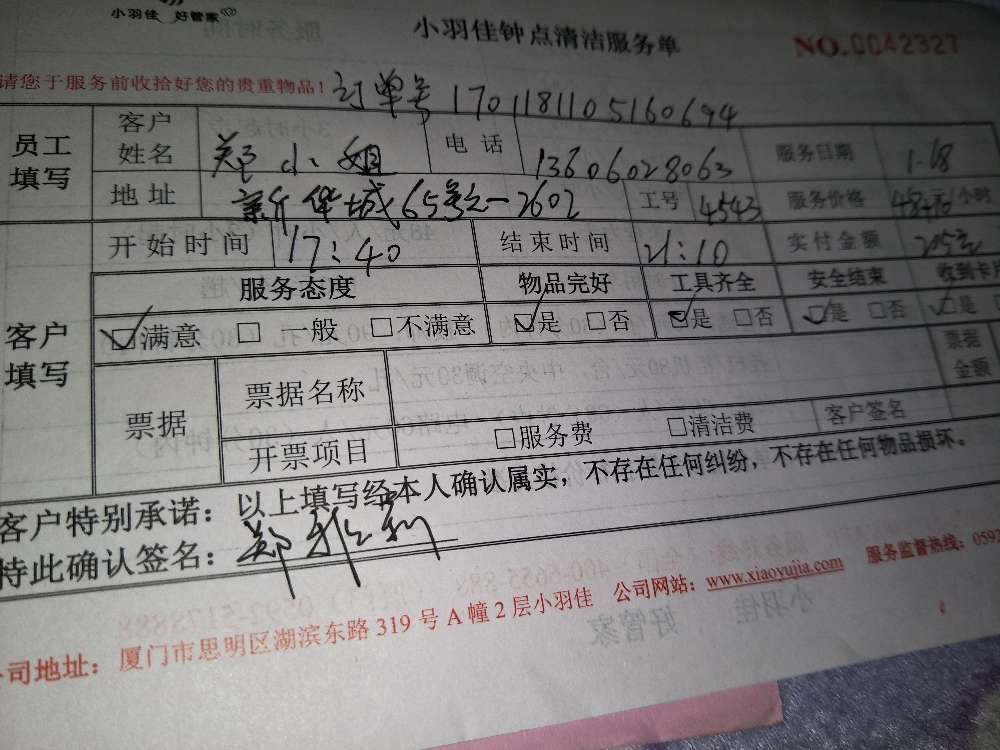 小羽佳 好管家
小羽佳钟点清洁服务单
NO.0042327
请您于服务前收拾好您的贵重物品!
订单号 1701181105160694
员工填写
客户姓名 郑小姐 电话 13606028063 服务日期 1-18
地址 新华城65号之一2602 工号 4543 服务价格 48元/小时
客户填写
开始时间 17:40 结束时间 21:10 实付金额 205元
服务态度 物品完好 工具齐全 安全结束 收到卡
☑满意 □一般 □不满意 ☑是 □否 ☑是 □否 ☑是 □否 ☑是
票据 票据名称 票据金额
开票项目 □服务费 □清洁费 客户签名
客户特别承诺:以上填写经本人确认属实,不存在任何纠纷,不存在任何物品损坏。
特此确认签名:
公司地址:厦门市思明区湖滨东路319号A幢2层小羽佳 公司网站:www.xiaoyujia.com 服务监督热线:0592